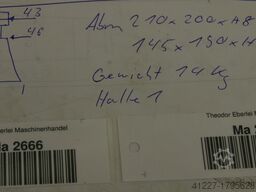 43
46
Abm 210 x 200 x 48
145 x 190 x H
Gewicht 14 Kg
Halle 1
1
erlei Maschinenhandel
Theodor Eberlei Ma
Ma 2666
Ma 2
41227-1795628